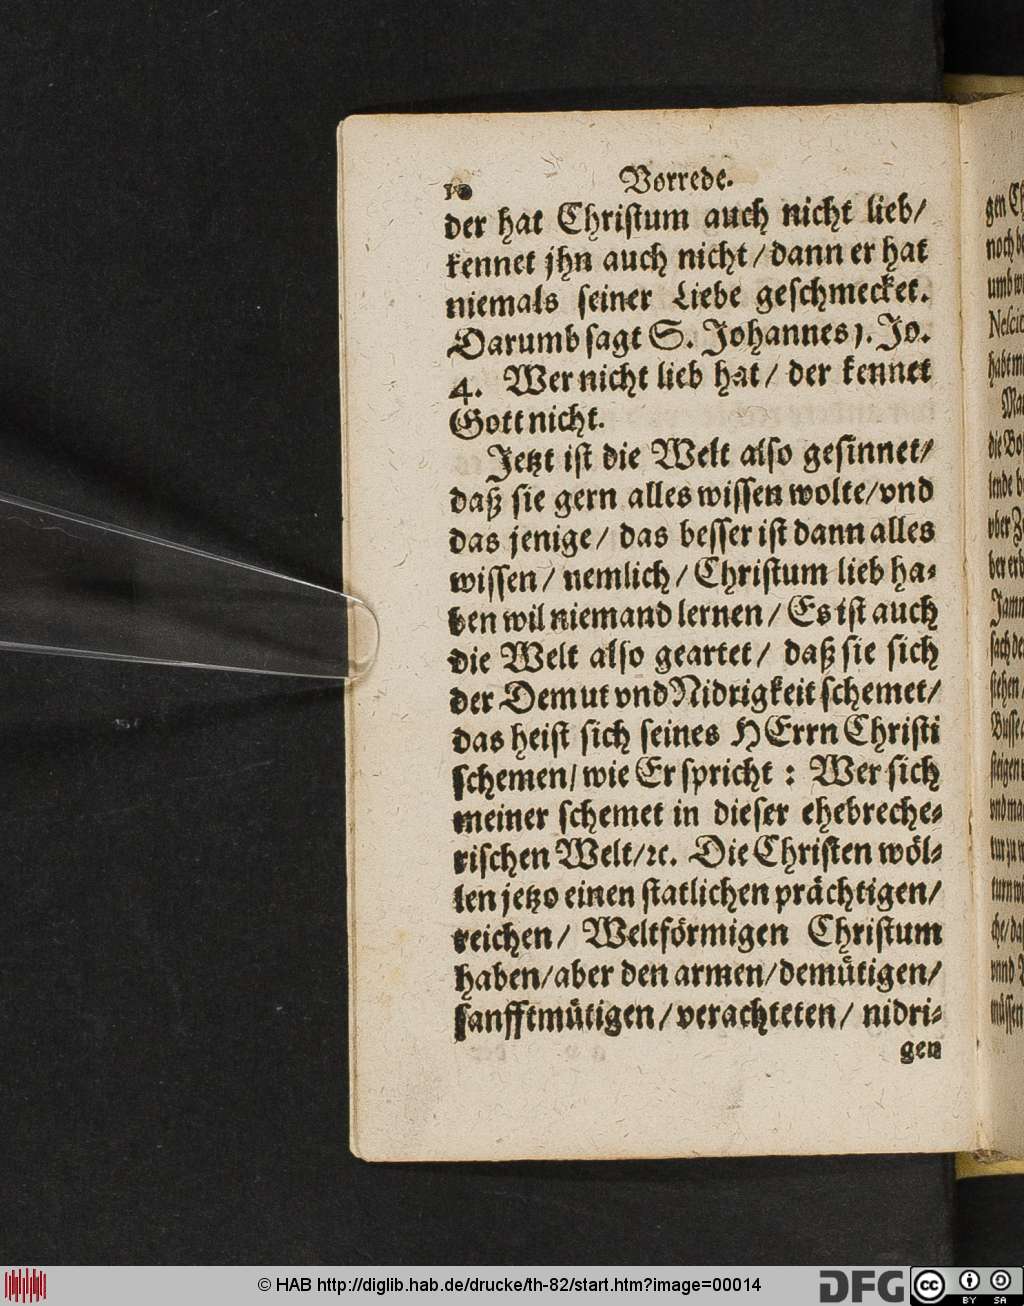 10 Vorrede.
der hat Christum auch nicht lieb/
kennet jhn auch nicht/dann er hat
niemals seiner Liebe geschmecket.
Darumb sagt S. Johannes 1. Jo.
4. Wer nicht lieb hat/ der kennet
Gott nicht.
Jetzt ist die Welt also gesinnet/
daß sie gern alles wissen wolte/vnd
das jenige/ das besser ist dann alles
wissen/ nemlich/ Christum lieb ha-
ben wil niemand lernen/ Es ist auch
die Welt also geartet/ daß sie sich
der Demut vnd Nidrigkeit schemet/
das heist sich seines HErrn Christi
schemen/ wie Er spricht: Wer sich
meiner schemet in dieser ehebreche-
rischen Welt/ꝛc. Die Christen wöl-
len jetzo einen statlichen prächtigen/
reichen/ Weltförmigen Christum
haben/aber den armen/demütigen/
sanfftmütigen/verachteten/ nidri-
gen
gen
die
Jam
stehen/
steigen
müssen
© HAB http://diglib.hab.de/drucke/th-82/start.htm?image=00014
DFG
cc BY SA